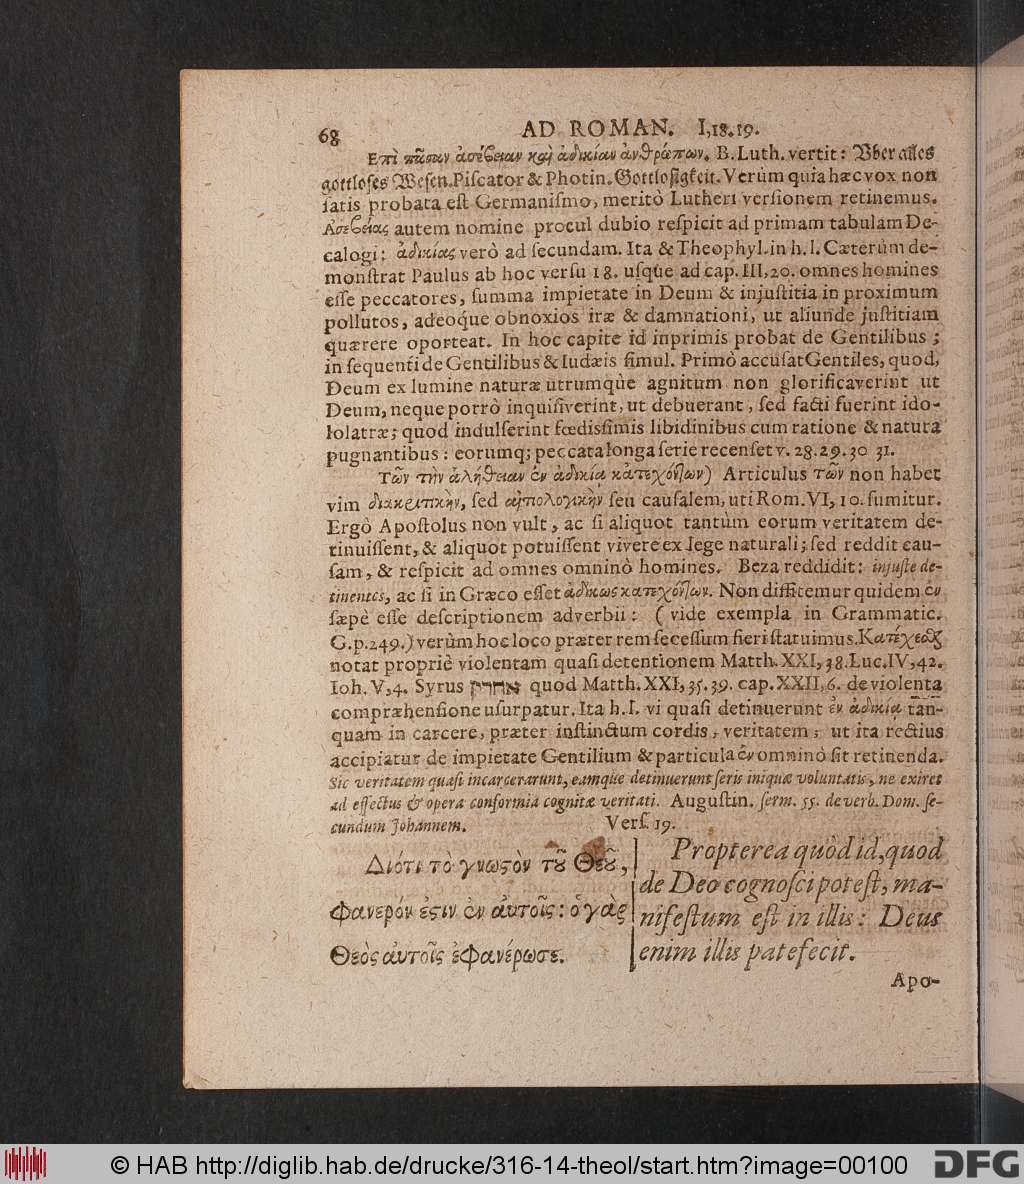 68 AD ROMAN. I,18.19.
Επὶ πᾶσαν ἀσέβειαν καὶ ἀδικίαν ἀνθρώπων. B. Luth. vertit: Vber alles
gottloses Wesen. Piſcator & Photin. Gottlosigkeit. Verùm quia hæc vox non
ſatis probata eſt Germaniſmo, meritò Lutheri verſionem retinemus.
Ἀσεβείας autem nomine procul dubio reſpicit ad primam tabulam De-
calogi: ἀδικίας verò ad ſecundam. Ita & Theophyl. in h. l. Cæterùm de-
monſtrat Paulus ab hoc verſu 18. uſque ad cap. III, 20. omnes homines
eſſe peccatores, ſumma impietate in Deum & injuſtitia in proximum
pollutos, adeoq́ue obnoxios iræ & damnationi, ut aliunde juſtitiam
quærere oporteat. In hoc capite id inprimis probat de Gentilibus;
in ſequenti de Gentilibus & Iudæis ſimul. Primò accuſat Gentiles, quod,
Deum ex lumine naturæ utrumquè agnitum non glorificaverint ut
Deum, neque porrò inquiſiverint, ut debuerant, ſed facti fuerint ido-
lolatræ; quod indulſerint fœdisſimis libidinibus cum ratione & natura
pugnantibus: eorumq; peccata longa ſerie recenſet v. 28.29.30 31.
Τῶν τὴν ἀλήθειαν ἐν ἀδικίᾳ κατεχόντων) Articulus τῶν non habet
vim διακριτικὴν, ſed αἰτιολογικὴν ſeu cauſalem, uti Rom. VI, 10. ſumitur.
Ergò Apoſtolus non vult, ac ſi aliquot tantùm eorum veritatem de-
tinuiſſent, & aliquot potuiſſent vivere ex lege naturali; ſed reddit cau-
ſam, & reſpicit ad omnes omninò homines. Beza reddidit: injuſte de-
tinentes, ac ſi in Græco eſſet ἀδίκως κατεχόντων. Non diffitemur quidem ἐν
ſæpè eſſe deſcriptionem adverbii: (vide exempla in Grammatic.
G.p.249.) verùm hoc loco præter rem ſeceſſum fieri ſtatuimus. Κατέχειν
notat propriè violentam quaſi detentionem Matth. XXI, 38. Luc. IV, 42.
Ioh. V, 4. Syrus אחדק quod Matth. XXI, 35. 39. cap. XXII, 6. de violenta
compræhenſione uſurpatur. Ita h. l. vi quaſi detinuerunt ἐν ἀδικίᾳ tan-
quam in carcere, præter inſtinctum cordis, veritatem, ut ita rectius
accipiatur de impietate Gentilium & particula ἐν omninò ſit retinenda.
Sic veritatem quaſi incarcerarunt, eamque detinuerunt ſeris iniquæ voluntatis, ne exiret
ad effectus & opera conformia cognitæ veritati. Auguſtin. ſerm. 55. de verb. Dom. ſe-
cundum Johannem. Verſ. 19.
Διότι τὸ γνωστὸν τοῦ Θεοῦ,
φανερόν ἐστιν ἐν αὐτοῖς: ὁ γὰρ
Θεὸς αὐτοῖς ἐφανέρωσε.
Propterea quòd id, quod
de Deo cognoſci poteſt, ma-
nifeſtum eſt in illis: Deus
enim illis patefecit.
Apo-
© HAB http://diglib.hab.de/drucke/316-14-theol/start.htm?image=00100 DFG